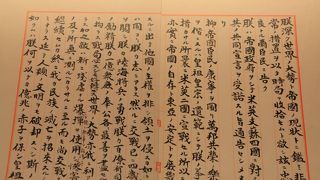 朕深ク世界ノ大勢ト帝國ノ現状トニ鑑ミ非
常ノ措置ヲ以テ時局ヲ收拾セムト欲シ茲ニ忠
良ナル爾臣民ニ告ク
朕ハ帝國政府ヲシテ米英支蘇四國ニ對シ其ノ
共同宣言ヲ受諾スル旨通告セシメタリ
抑〻帝國臣民ノ康寧ヲ圖リ萬邦共榮ノ樂
ヲ偕ニスルハ皇祖皇宗ノ遺範ニシテ朕ノ拳々
措カサル所曩ニ米英二國ニ宣戰セル所以モ
亦實ニ帝國ノ自存ト東亞ノ安定トヲ庶幾
スルニ出テ他國ノ主權ヲ排シ領土ヲ侵スカ如
キハ固ヨリ朕カ志ニアラス然ルニ交戰已ニ
閲シ朕カ陸海將兵ノ勇戰朕カ百僚有司
勵精朕カ一億衆庶ノ奉公各〻最善ヲ盡
戰局 世界ノ大勢亦我ニ利
新ニ殘虐ナル爆彈ヲ使用シテ
而モ尚交戰
繼續セムカ終ニ我カ民族ノ滅亡ヲ招來スル
ノミナラス延テ人類ノ文明ヲモ破却スヘシ斯ノ
如クムハ朕何ヲ以テカ億兆ノ赤子ヲ保シ